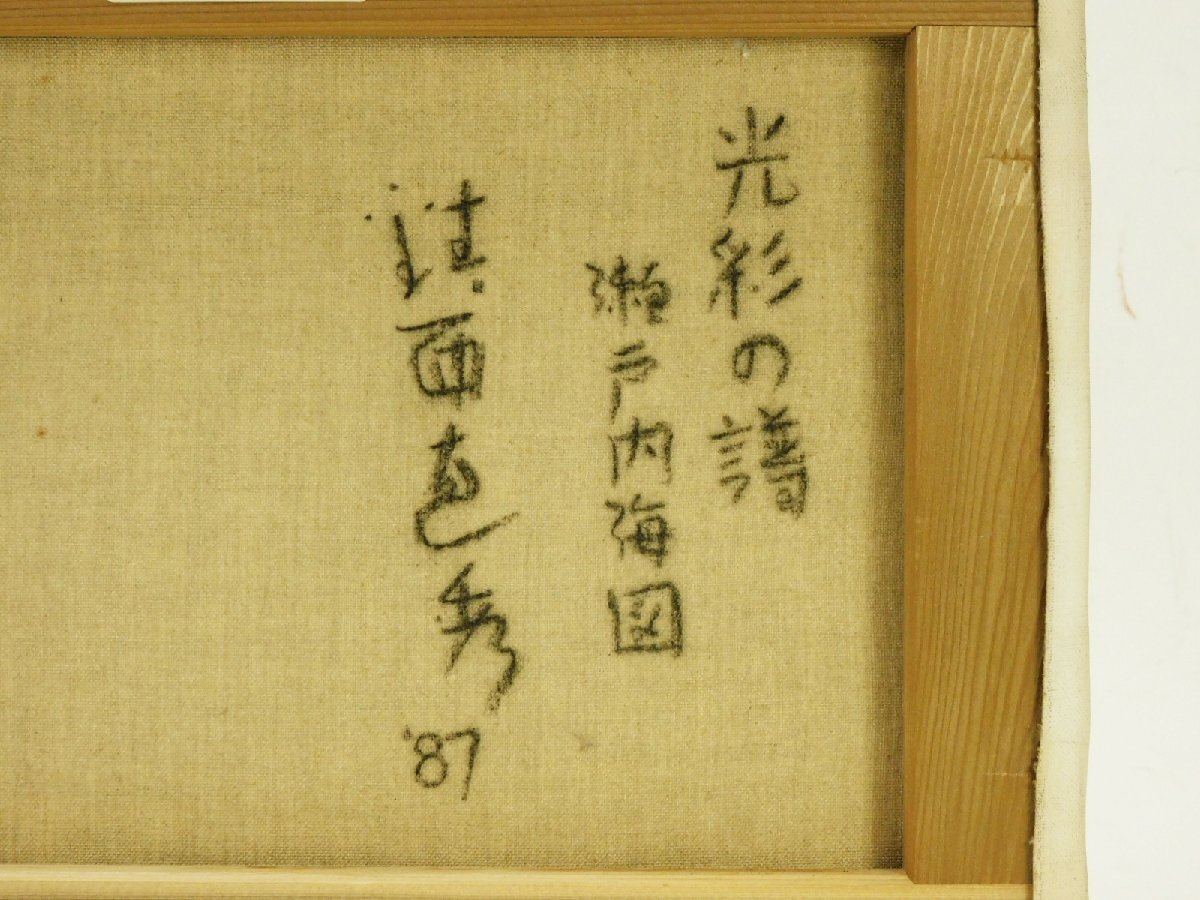 光彩の譜
瀬戸内海図
鎮西直秀
'87